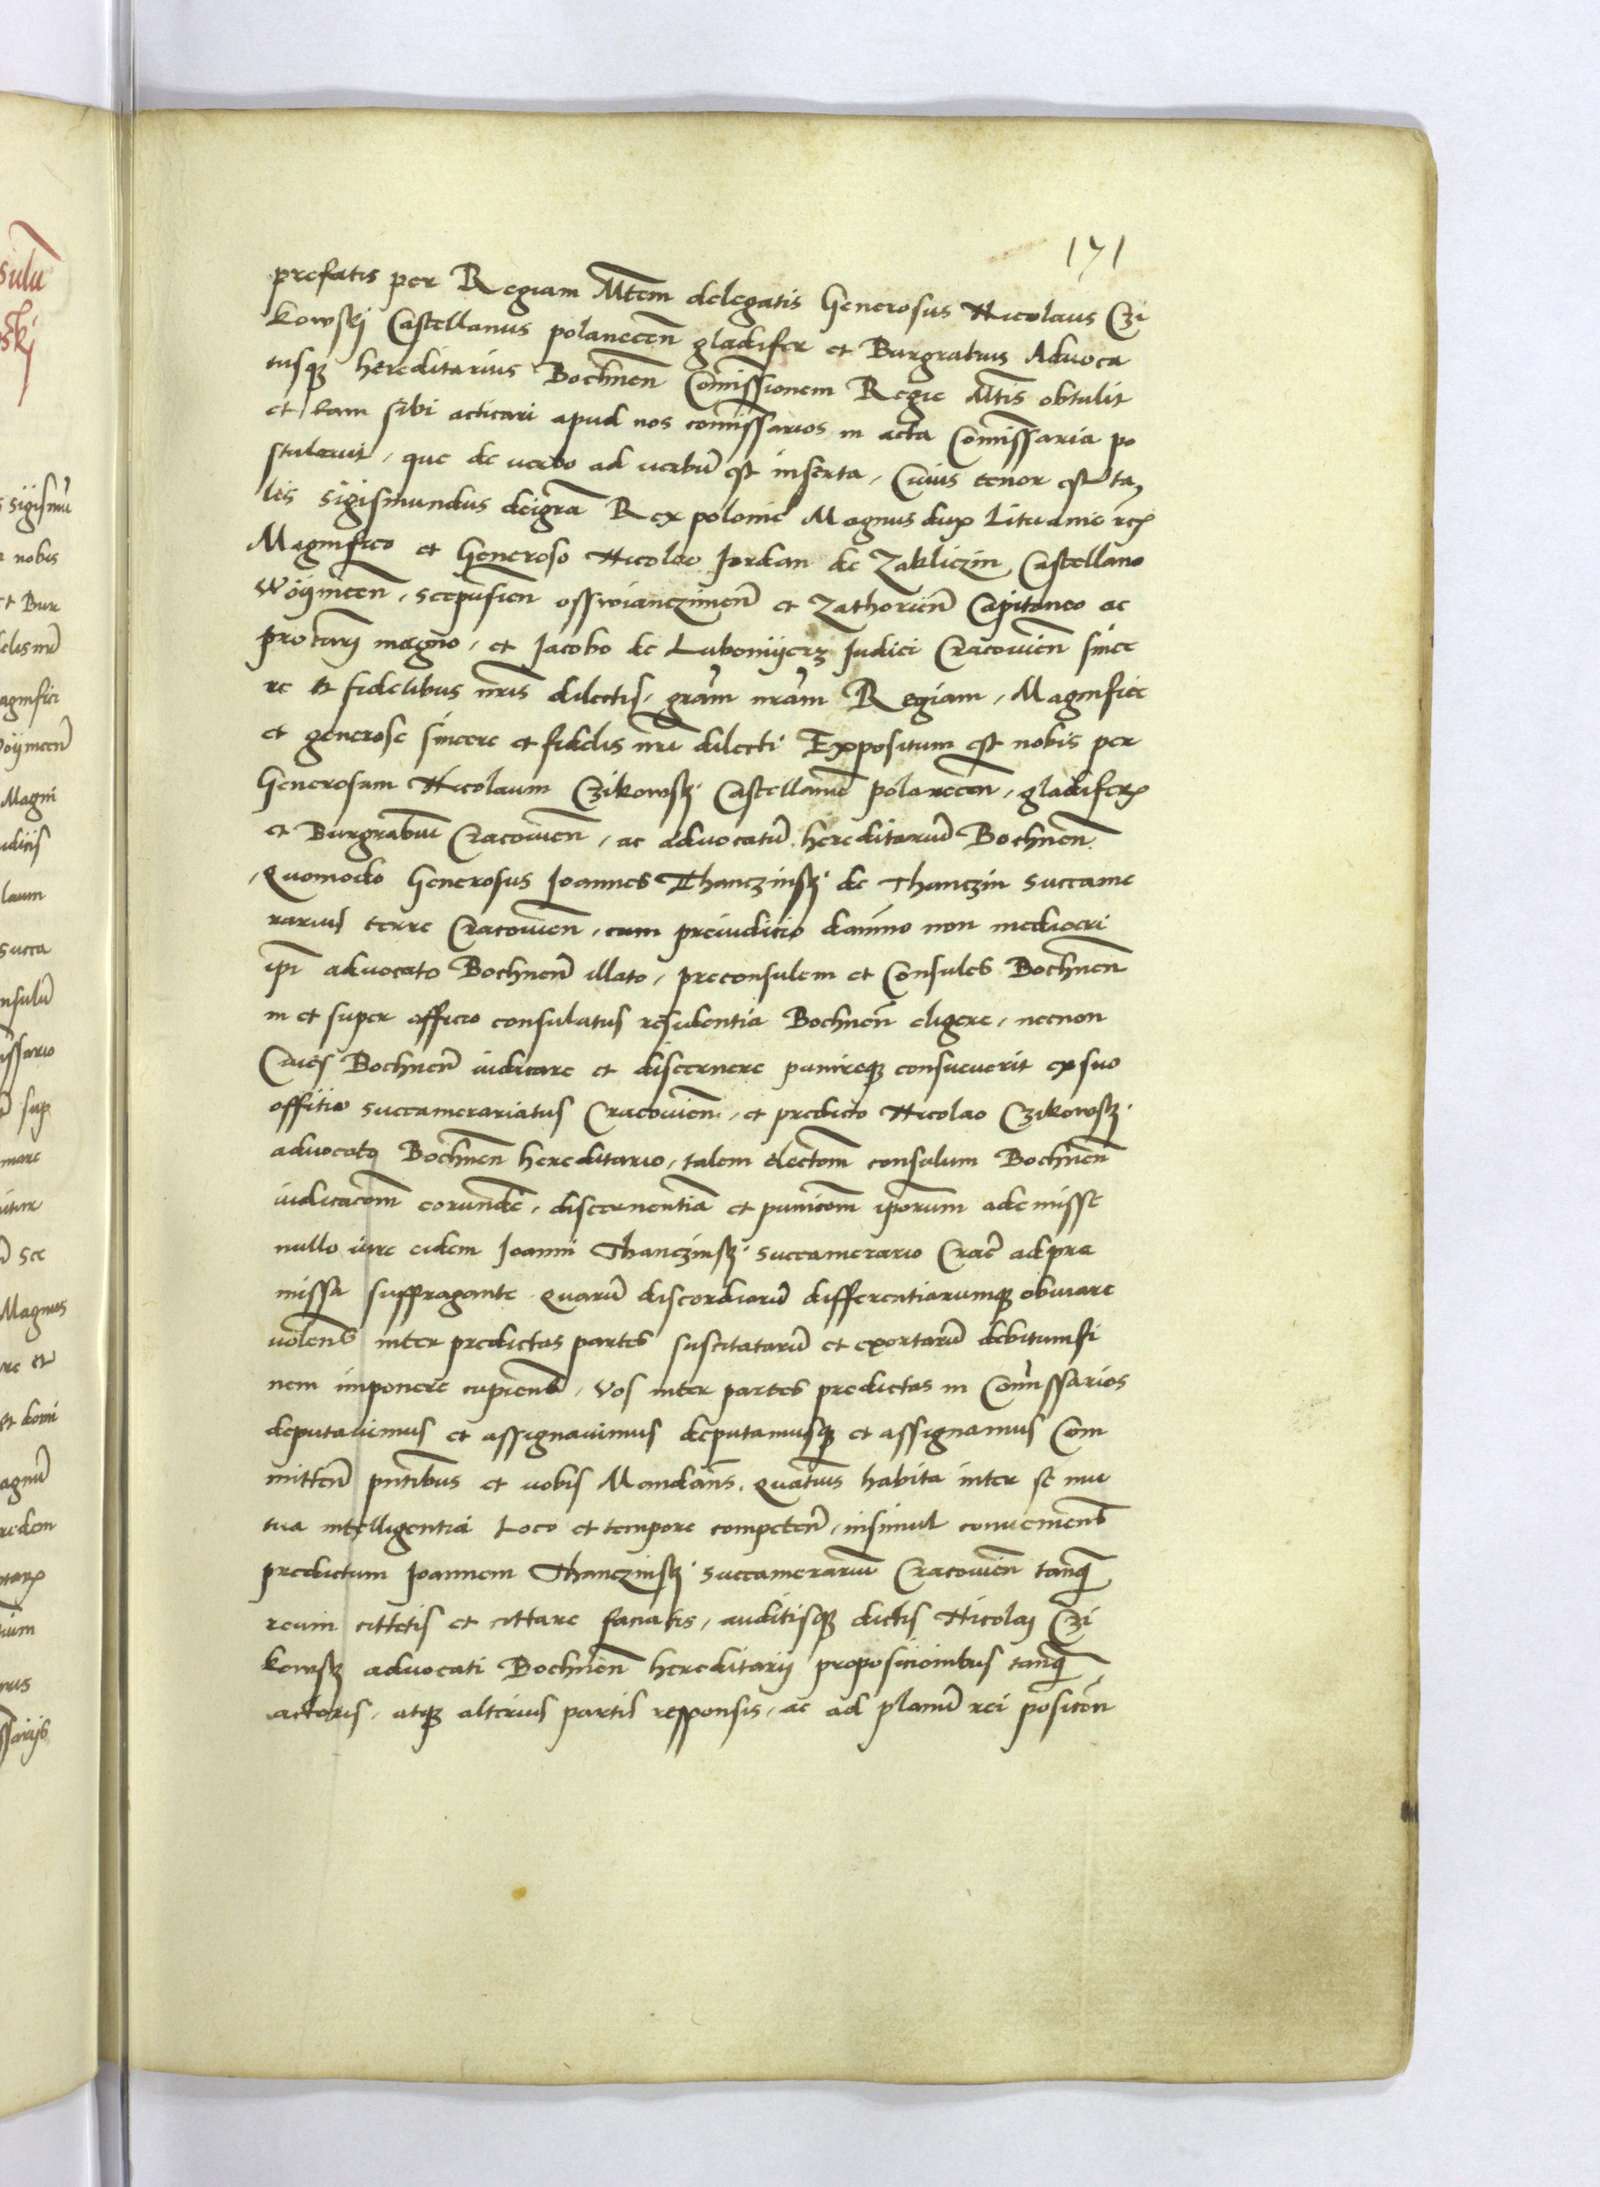 171
prefatis per Regiam Mtem delegatis Generosus Nicolaus Czi
kowskj Castellanus polanecen̄ gladifer et Burgrabius Advoca
tusq₃ hereditarius Bochnen̄ Com̄issionem Regie Mtis obtulit
et eam sibi acticari apud nos com̄issarios in acta Com̄issaria po
stulavit, que de verbo ad verbū est inserta, Cuius tenor est ta,
lis Sigismundus dei gr̄a Rex polonie Magnus dux Lituanie
Magnifico et Generoso Nicolao Jordan de Zakliczin Castellano
Woÿnicen̄, scepusien̄ osswianczimen̄ et Zathorien̄ Capitaneo ac
magno, et Jacobo de Lubomÿerz Judici Cracovien̄ since
re et fidelibus nr̄is dilectis, gr̄am nr̄am Regiam, Magnifice
et generose sincere et fidelis nr̄i dilecti Expositum est nobis per
Generosum Nicolaum Czikowskj Castellanū polanecen̄, gladiferū
et Burgrabiū Cracovien̄, ac advocatū hereditariū Bochnen̄.
Quomodo Generosus Joannes Thanczinskj de Thanczin succame
rarius terre Cracovien̄, cum preiudicio damno non mediocri
ip̄i advocato Bochnen̄ illato, preconsulem et Consules Bochnen̄
in et super officio consulatus residentia Bochnen̄ eligere, necnon
Cives Bochnen̄ iudicare et discernere punireq₃ consueverit ex suo
offitio succamerariatus Cracovien̄, et predicto Nicolao Czikowskj
advocato Bochnen̄ hereditario, talem electōem consulum Bochnen̄
iudicacōem eorundē, discernentiā et punicōem ip̄orum ademisse
nullo iure eidem Joanni Thanczinskj succamerario Crac̄ ad pre
missa suffragante Quarū discordiarū differentiarumq₃ obviare
volens inter predictas partes suscitatarū et exortarū debitum fi
nem imponere cupiens, vos inter partes predictas in Com̄issarios
deputavimus et assignavimus deputamusq₃ et assignamus Com
mitten̄ pn̄tibus et vobis Mandan̄s, Quaten̄us habita inter se mu
tua intelligentia Loco et tempore competen̄, insimul conveniens
predictum Joannem Thanczinskj succamerariū Cracovien̄ tanq̄
reum cittetis et cittare faciatis, auditisq₃ dictis Nicolaj Czi
kowskj advocati Bochnen̄ hereditarii proposicionibus tanq̄
actoris, atq₃ alterius partis responsis, ac ad planū rei posicōn̄